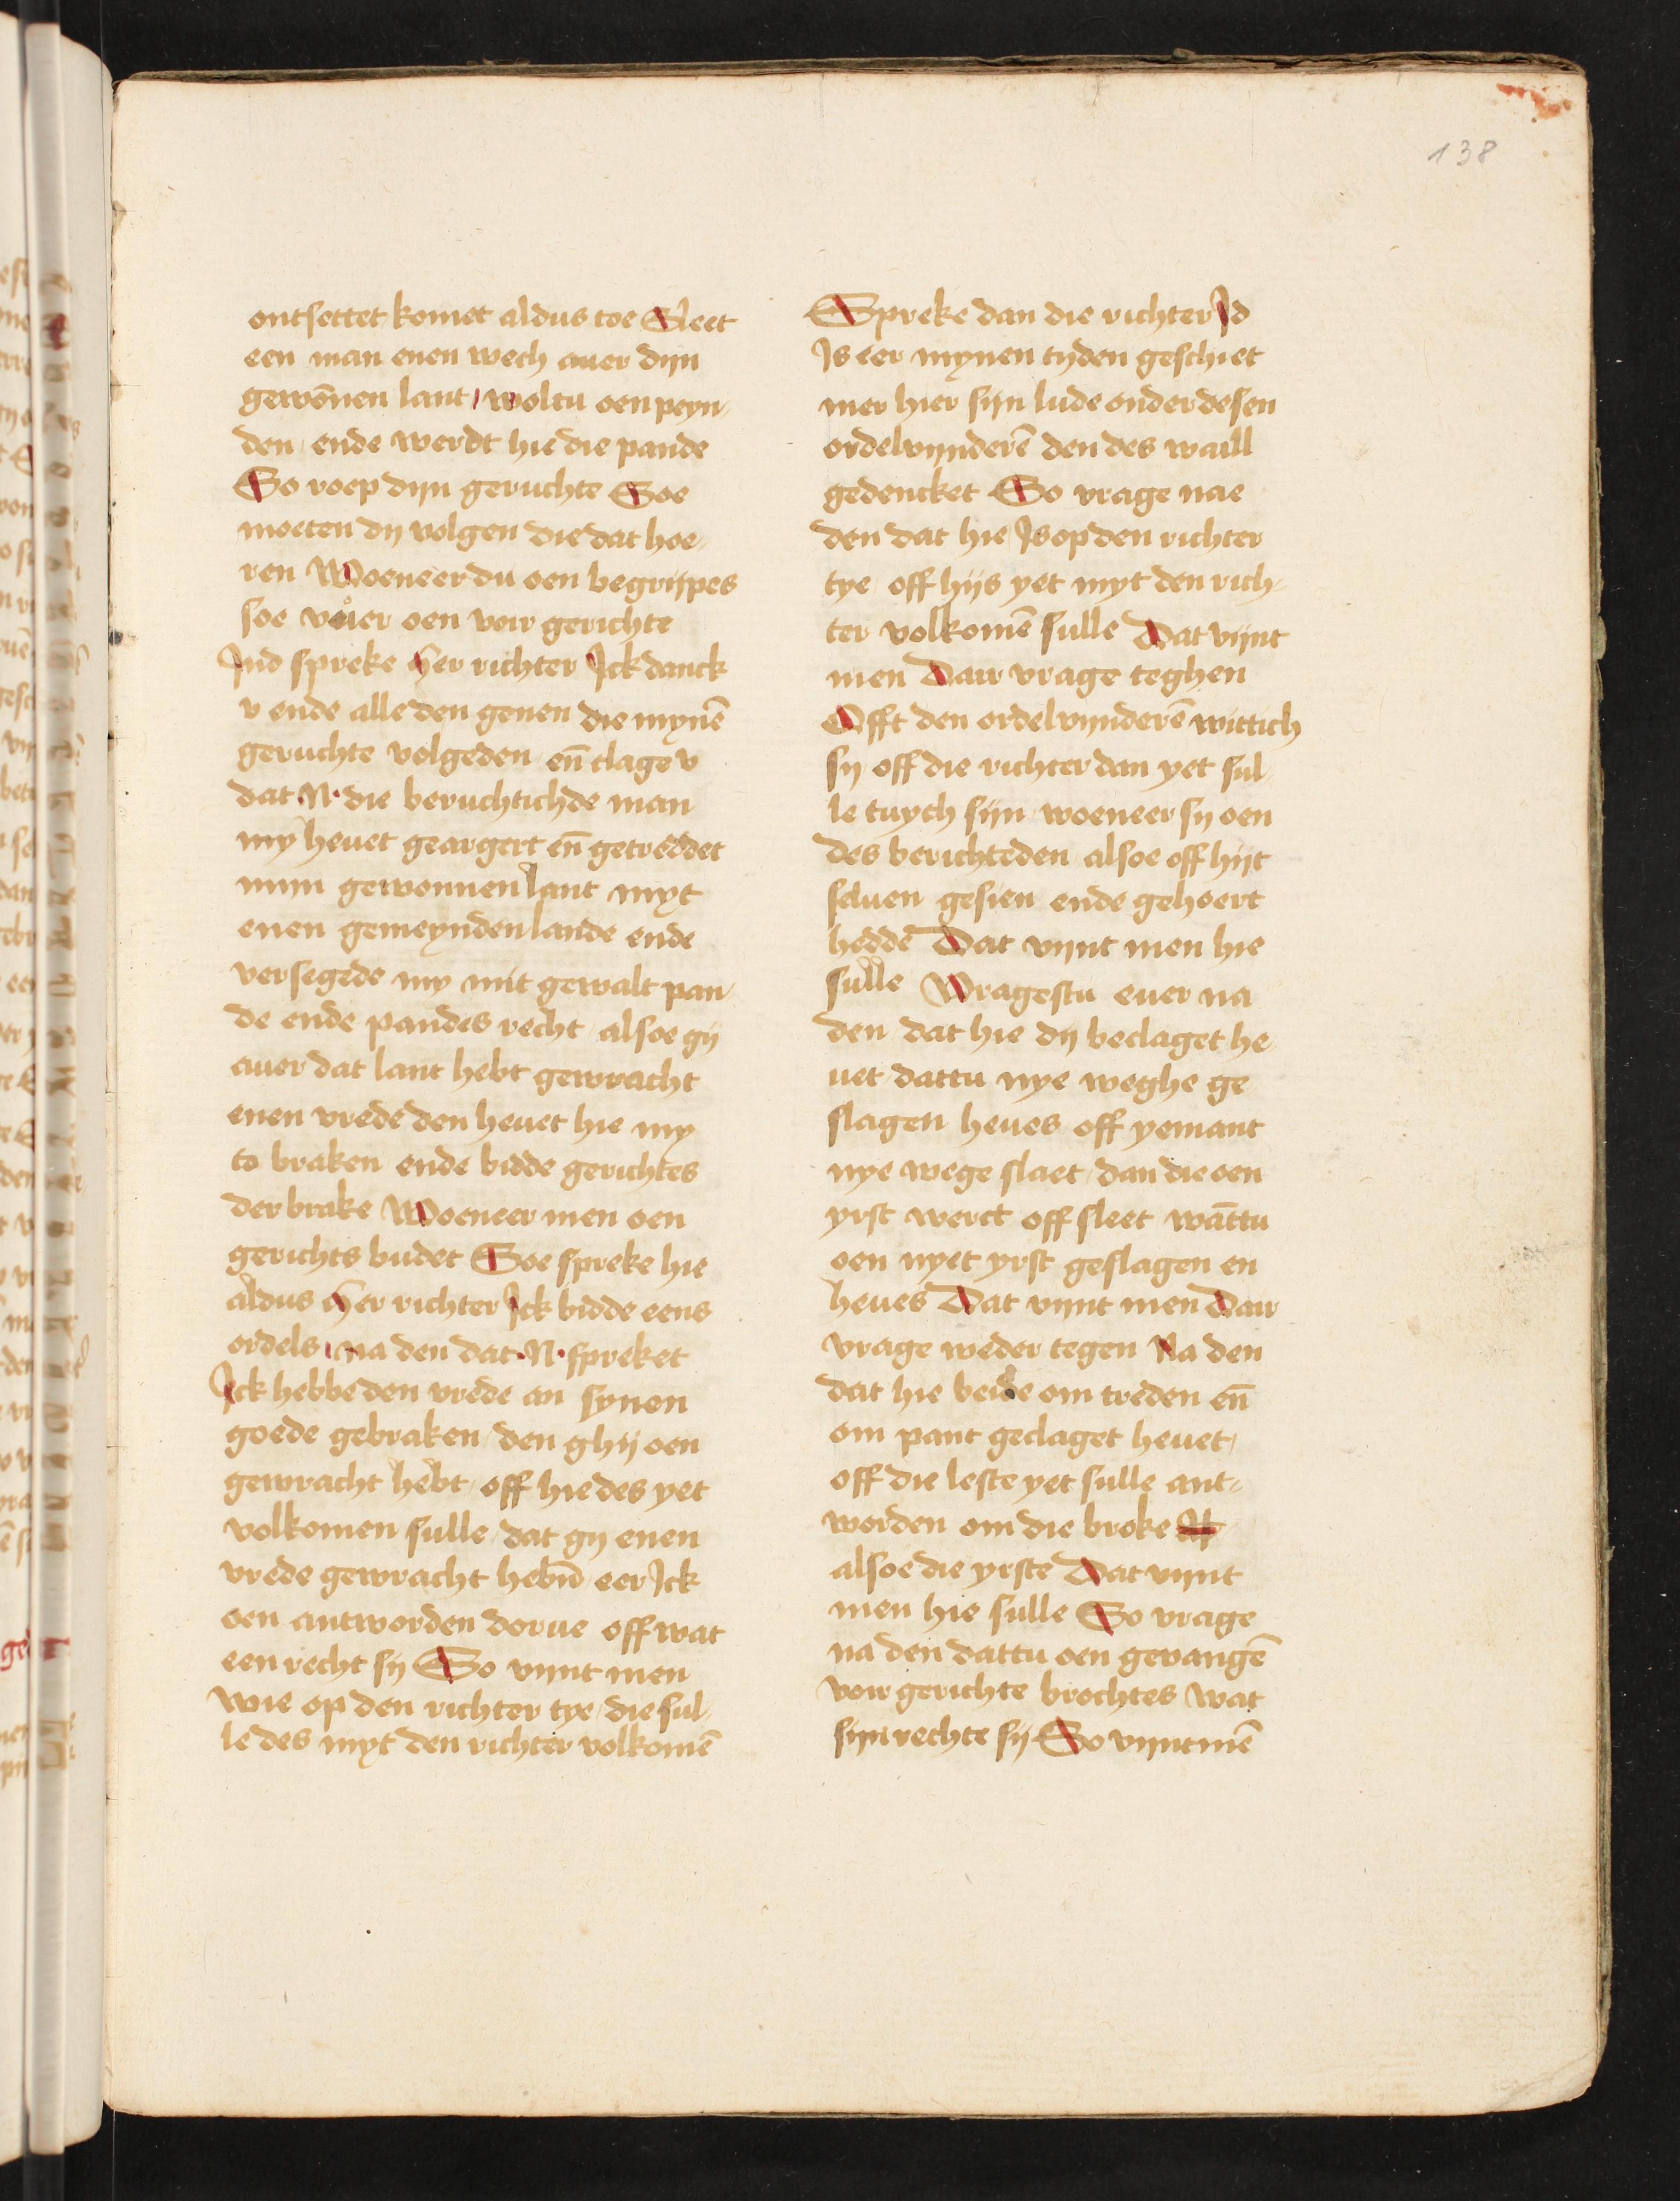 138
ontsettet komet aldus toe Sleet
een man enen wech auer dijn
gewōnen lant woltu oen peyn
den ende werdt hie die pande
So roep dijn geruchte Soe
moeten dij volgen die dat hoe
ren Woeneer du oen begrijpes
soe vůer oen voir gerichte
Ind spreke Her richter Jck danck
v ende alle den genen die mynē
geruchte volgeden eñ clage v
dat N die beruchtichde man
my heuet geargert eñ getreddet
mijn gewonnen lant myt
enen gemeynden lande ende
versegede my mit gewalt pan
de ende pandes recht alsoe gij
auer dat lant hebt gewracht
enen vrede den heuet hie my
to braken ende bidde gerichtes
der brake Woeneer men oen
gerichts budet Soe spreke hie
aldus Her richter Jck bidde eens
ordels na den dat N spreket
Jck hebbe den vrede an synen
goede gebraken den ghij oen
gewracht hebt off hie des yet
volkomen sulle dat gij enen
vrede gewracht hebn̄ eer Jck
oen antworden dorue off wat
een recht sij So vijnt men
wie op den richter tye die sul
le des myt den richter volkomē
Spreke dan die richter Jd
Js eer mynen tyden geschiet
mer hier sijn lude onder desen
ordelvijnderē den des waill
gedencket So vrage nae
den dat hie Js op den richter
tye off hijs yet myt den rich
ter volkomē sulle Dat vijnt
men Dair vrage teghen
Offt den ordelvijnderē wittich
sij off die richter dan yet sul
le tuych sijn woeneer sij oen
des berichteden alsoe off hijt
seluen gesien ende gehoert
hedde Dat vijnt men hie
sulle Wragestu euer na
den dat hie dij beclaget he
uet dattu nye weghe ge
slagen heues off yemant
nye wege slaet dan die oen
yrst werct off sleet wāttu
oen nyet yrst geslagen en
heues Dat vijnt men Dair
vrage weder tegen Na den
dat hie beide om treden eñ
om pant geclaget heuet
off die leste yet sulle ant
worden om die broke
alsoe die yrste Dat vijnt
men hie sulle So vrage
na den dattu oen gevangē
voir gerichte brochtes wat
sijn rechte sij So vijnt mē